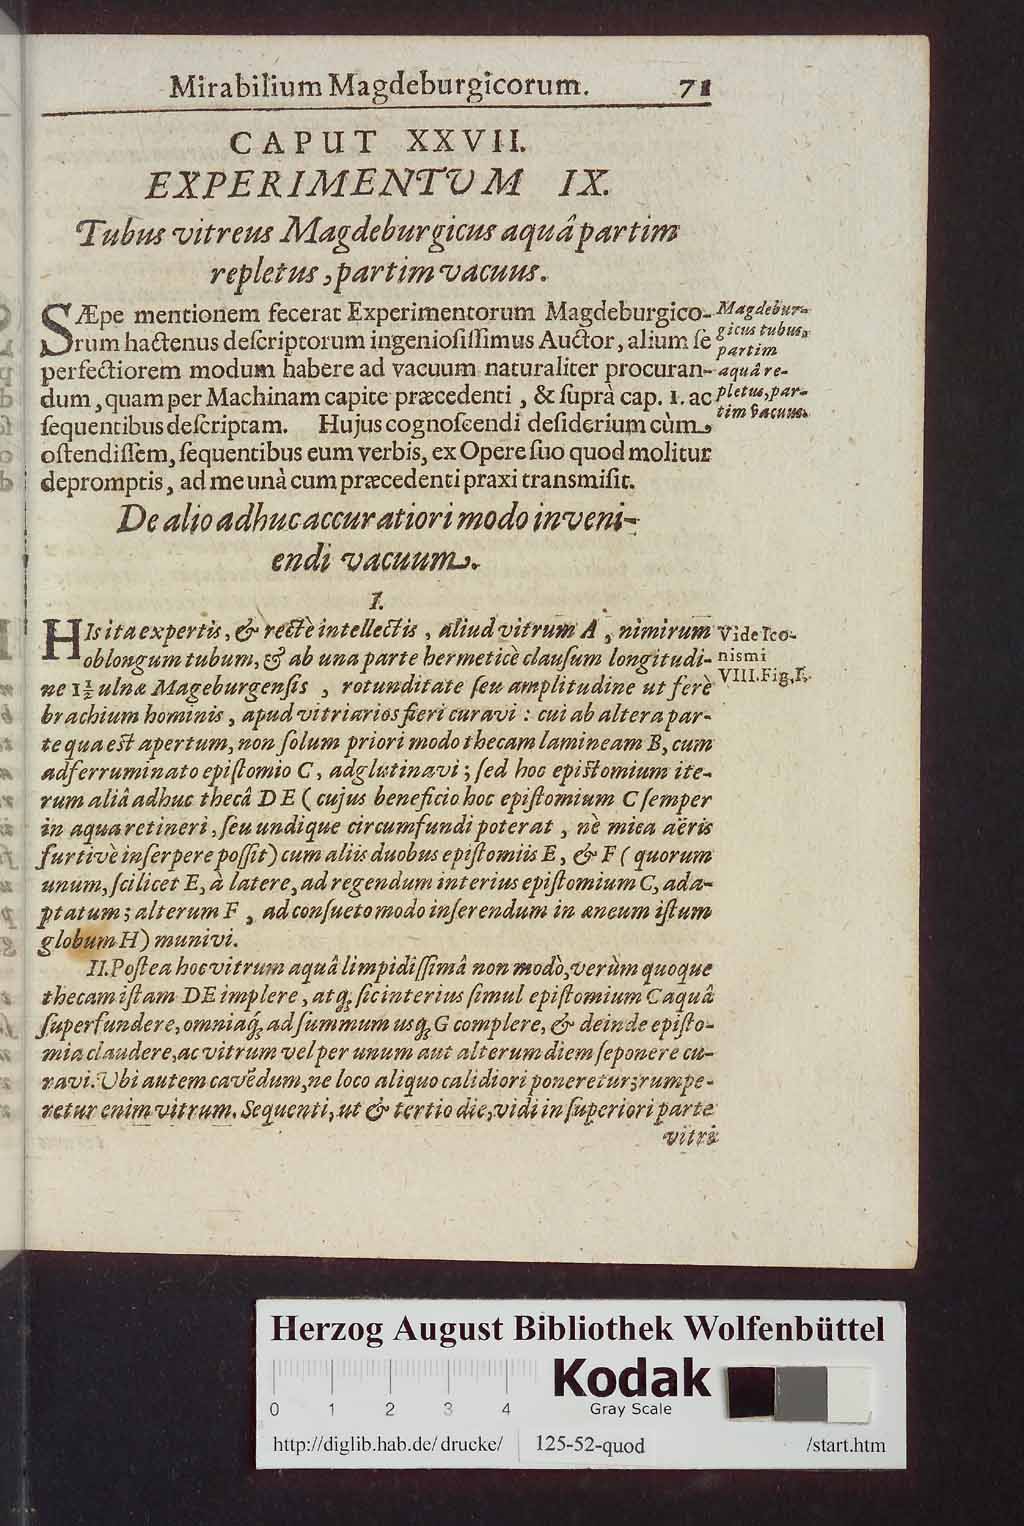 Mirabilium Magdeburgicorum. 71
CAPUT XXVII.
EXPERIMENTUM IX.
Tubus vitreus Magdeburgicus aquâ partim
repletus, partim vacuus.
SÆpe mentionem fecerat Experimentorum Magdeburgico-
rum hactenus deſcriptorum ingenioſiſſimus Auctor, alium ſe
perfectiorem modum habere ad vacuum naturaliter procuran-
dum, quam per Machinam capite præcedenti, & ſuprà cap. 1. ac
ſequentibus deſcriptam. Hujus cognoſcendi deſiderium cùm
oſtendiſſem, ſequentibus eum verbis, ex Opere ſuo quod molitur
depromptis, ad me unà cum præcedenti praxi transmiſit.
Magdebur-
gicus tubus,
partim
aquâ re-
pletus, par-
tim vacuus.
De alio adhuc accuratiori modo inveni-
endi vacuum.
I.
HIs ita expertis, & rectè intellectis, aliud vitrum A, nimirum
oblongum tubum, & ab una parte hermeticè clauſum longitudi-
ne 1½ ulnæ Mageburgenſis, rotunditate ſeu amplitudine ut ferè
brachium hominis, apud vitriarios fieri curavi: cui ab altera par-
te qua eſt apertum, non ſolum priori modo thecam lamineam B, cum
adferruminato epiſtomio C, adglutinavi; ſed hoc epiſtomium ite-
rum aliâ adhuc thecâ DE (cujus beneficio hoc epiſtomium C ſemper
in aqua retineri, ſeu undique circumfundi poterat, nè mica aëris
furtivè inſerpere poſſit) cum aliis duobus epiſtomiis E, & F (quorum
unum, ſcilicet E, à latere, ad regendum interius epiſtomium C, ada-
ptatum; alterum F, ad conſueto modo inſerendum in æneum iſtum
globum H) munivi.
Vide Ico-
nismi
VIII. Fig. I.
II. Poſtea hoc vitrum aquâ limpidiſſimâ non modò, verùm quoque
thecam iſtam DE implere, atq; ſic interius ſimul epiſtomium C aquâ
ſuperfundere, omniaq́; ad ſummum usq; G complere, & deinde epiſto-
mia claudere, ac vitrum vel per unum aut alterum diem ſeponere cu-
ravi. Ubi autem cavẽdum, ne loco aliquo calidiori poneretur; rumpe-
retur enim vitrum. Sequenti, ut & tertio die, vidi in ſuperiori parte
vitri
Herzog August Bibliothek Wolfenbüttel
0 1 2 3 4
Kodak
Gray Scale
http://diglib.hab.de/drucke/ 125-52-quod /start.htm